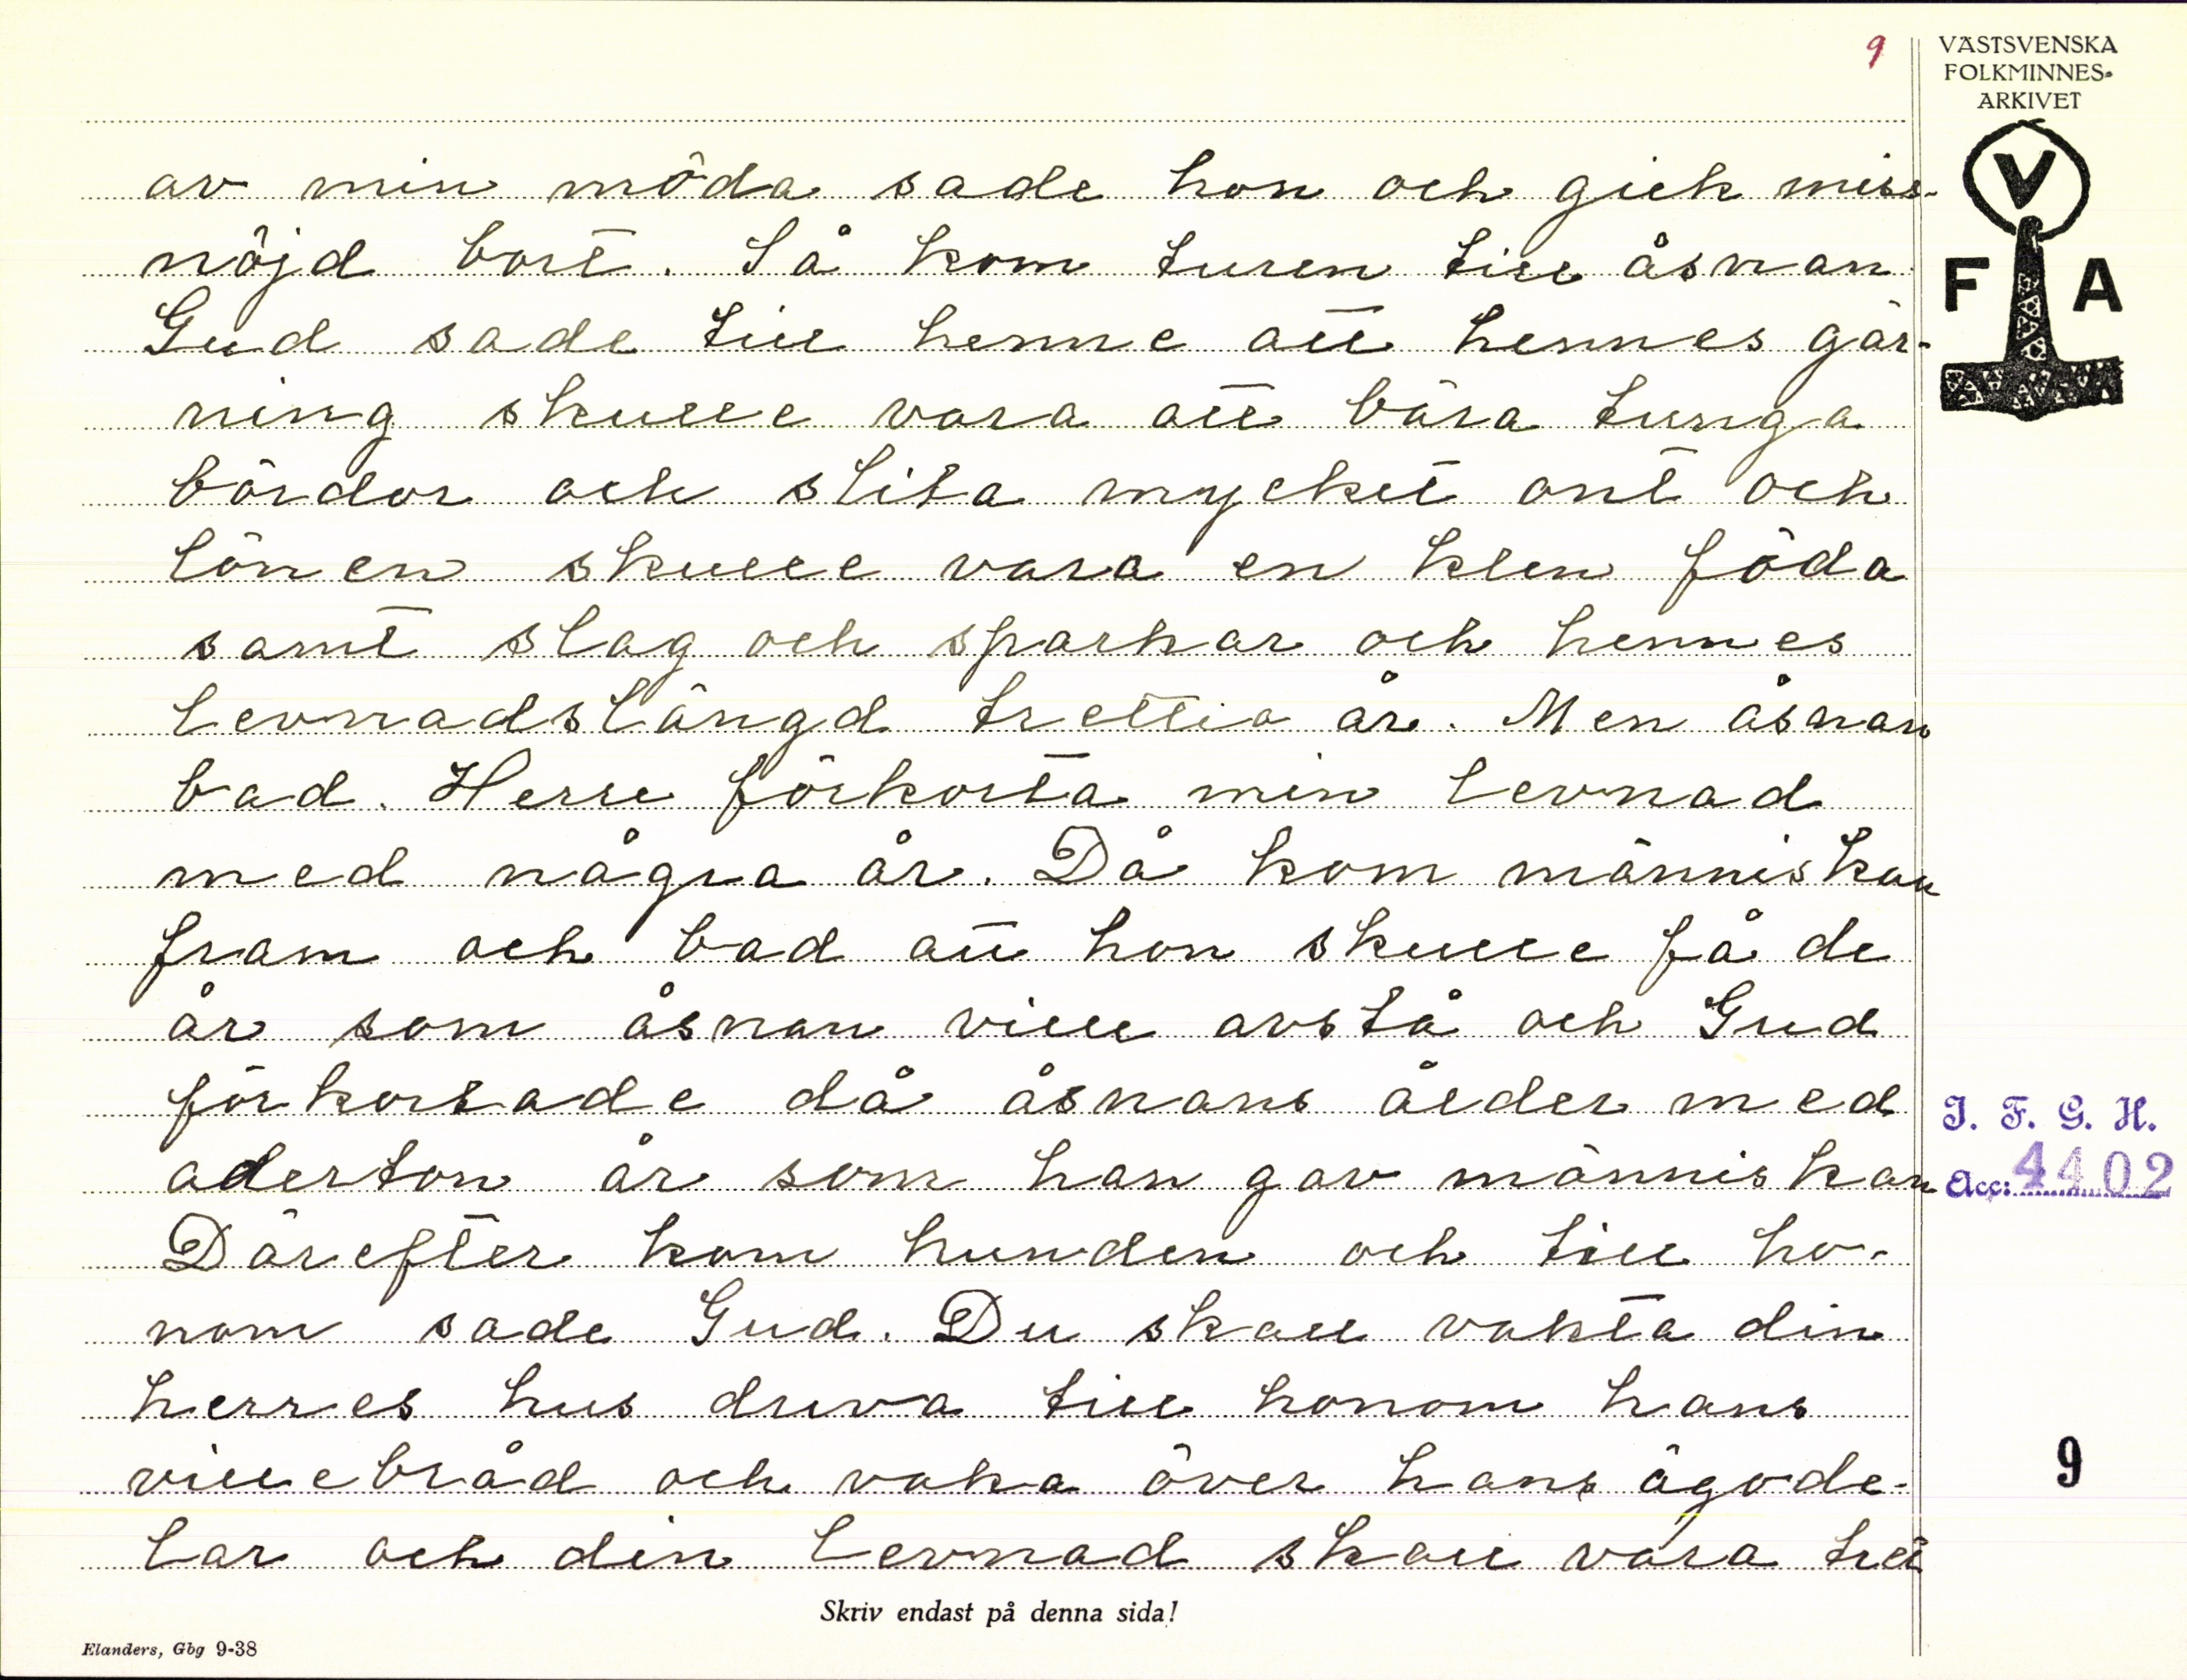 9
VÄSTSVENSKA
FOLKMINNES-
ARKIVET
V
F A
av min möda sade hon och gick miss-
nöjd bort. Så kom turen till åsnan
Gud sade till henne att hennes gär-
ning skulle vara att bära tunga
bördor och slita mycket ont och
lönen skulle vara en klen föda
samt slag och sparkar och hennes
levnadslängd trettio år. Men åsnan
bad. Herre förkorta min levnad
med några år. Då kom människan
fram och bad att hon skulle få de
år som åsnan ville avstå och Gud
förkortade då åsnans ålder med
aderton år som han gav människan
Därefter kom hunden och till ho-
nom sade Gud. Du skall vakta din
herres hus druva till honom hans
villebråd och vaka över hans ägode-
lar och din levnad skall vara tret
I. F. G. H.
Acc: 4402
9
Skriv endast på denna sida!
Elanders, Gbg 9-38